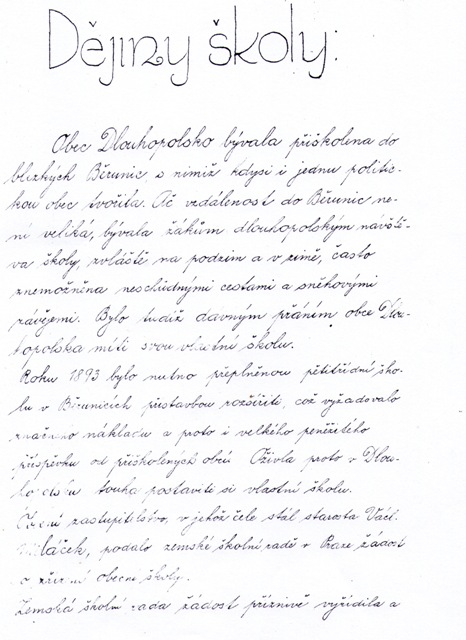 Dějiny školy:
Obec Dlouhopolsko bývala přiškolena do
blízkých Běrunic, s nimiž kdysi i jednu politic-
kou obec tvořila. Ač vzdálenost do Běrunic ne-
ní veliká, bývala žákům dlouhopolským návště-
va školy, zvláště na podzim a v zimě, často
znemožněna neschůdnými cestami a sněhovými
závějemi. Bylo tudíž dávným přáním obce Dlou-
hopolska míti svou vlastní školu.
Roku 1893 bylo nutno přeplněnou pětitřídní ško-
lu v Běrunicích přestavbou rozšířiti, což vyžadovalo
značného nákladu a proto i velkého peněžitého
příspěvku od přiškolených obcí. Ožila proto v Dlou-
touha postaviti si vlastní školu.
zastupitelstvo, v jehož čele stál starosta Václ.
podalo zemské školní radě v Praze žádost
o zřízení obecné školy.
Zemská školní rada žádost příznivě vyřídila a